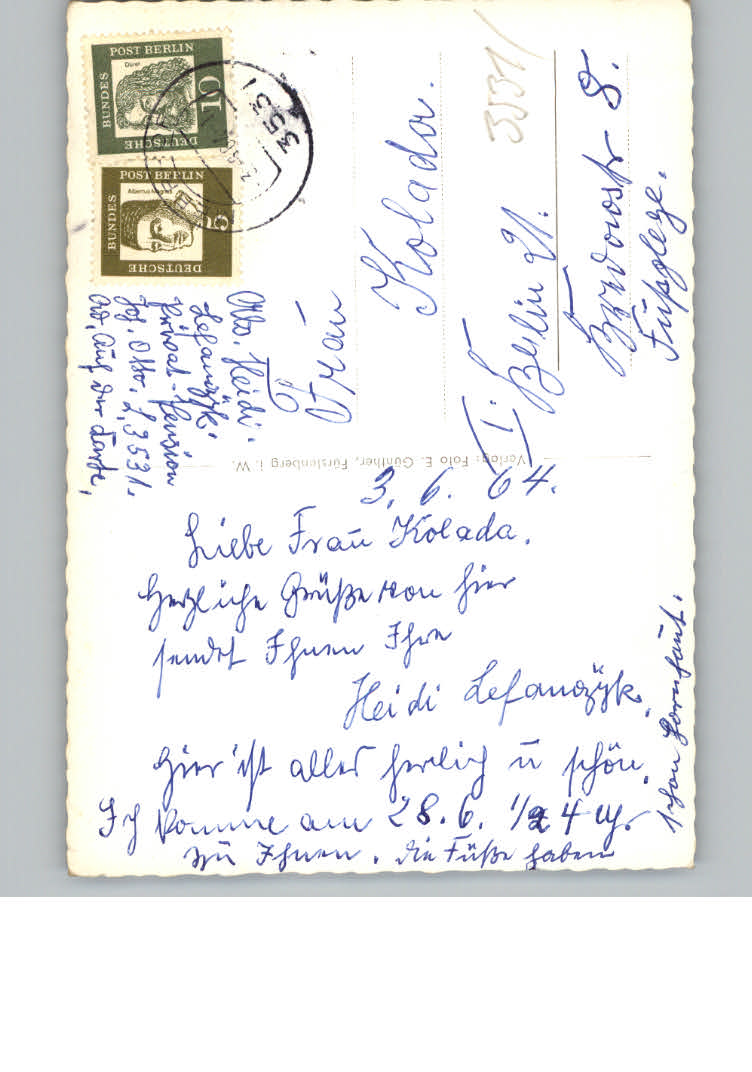 BUNDES
POST BERLIN
DEUTSCHE
Dürer
10
BUNDES
POST BERLIN
DEUTSCHE
Albertus Magnus
5
3531
3531/
Abs. Heidi
Lefanczÿk.
Privat-Pension
Jos. Otto. 3531.
auf der
Frau
Kolador.
1. Berlin 21.
8.
Fußpflege.
Verlag: Foto E. Günther, Fürstenberg i. W.
3. 6. 64.
Liebe Frau Kolada.
Herzliche Grüße von hier
sendet Ihnen Ihre
Heidi Lefanczÿk.
Hier ist alles herrlich u schön.
Ich komme am 28.6. 1/2 4 Uhr
zu Ihnen. Die Füße haben
schon Hornhaut.